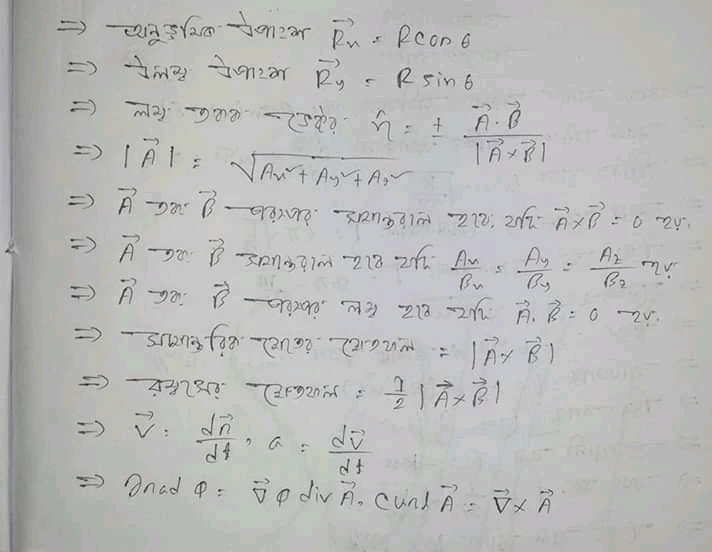 ⇒ অনুভূমিক উপাংশ R⃗x = R cos θ
⇒ উলম্ব উপাংশ R⃗y = R sin θ
⇒ লম্ব একক ভেক্টর n̂ = ± A⃗·B⃗ / |A⃗×B⃗|
⇒ |A⃗| = √(Ax² + Ay² + Az²)
⇒ A⃗ এবং B⃗ পরস্পর সমান্তরাল হবে, যদি A⃗×B⃗ = 0 হয়.
⇒ A⃗ এবং B⃗ সমান্তরাল হবে যদি Ax/Bx = Ay/By = Az/Bz হয়
⇒ A⃗ এবং B⃗ পরস্পর লম্ব হবে যদি A⃗.B⃗ = 0 হয়.
⇒ সামান্তরিক ক্ষেত্রের ক্ষেত্রফল = |A⃗×B⃗|
⇒ রম্বসের ক্ষেত্রফল = 1/2 |A⃗×B⃗|
⇒ v⃗ = dr⃗/dt, a = dv⃗/dt
⇒ Grad φ = ∇⃗φ div A⃗, Curl A⃗ = ∇⃗×A⃗